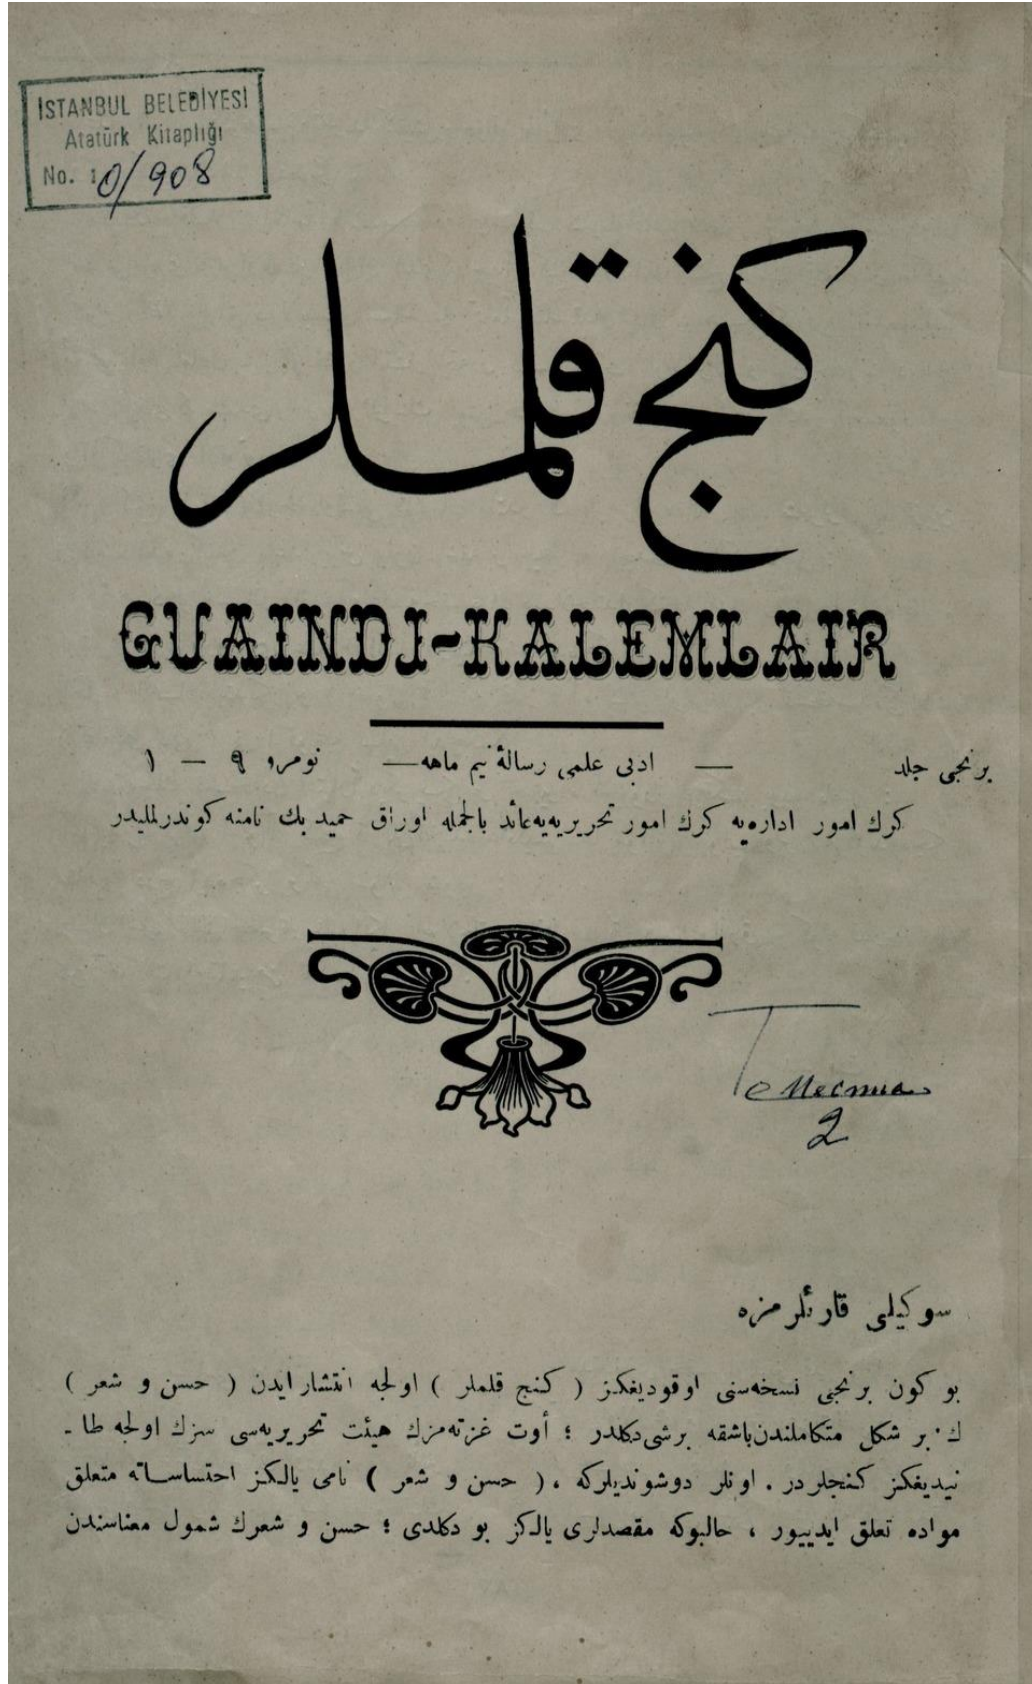 İSTANBUL BELEDİYESİ
Atatürk Kitaplığı
No. 10/908
كنج قلملر
GUAINDJ-KALEMLAIR
برنجی جلد — ادبی علمی رسالۀ نیم ماهه — نومرو ٩ — ١
كرك امور اداره‌یه كرك امور تحریریه‌یه‌عائد بالجمله اوراق حمید بك نامنه كوندرلملیدر
2
سوكیلی قارئلرمزه
بو كون برنجی نسخه‌سنی اوقودیغكز ( كنج قلملر ) اولجه انتشار ایدن ( حسن و شعر )
ك بر شكل متكاملندن‌باشقه برشی‌دكلدر ؛ أوت غزته‌مزك هیئت تحریریه‌سی سزك اولجه طا ـ
نیدیغكز كنجلردر . اونلر دوشوندیلركه ، ( حسن و شعر ) نامی یالكز احتساساته متعلق
مواده تعلق ایدییور ، حالبوكه مقصدلری یالكز بو دكلدی ؛ حسن و شعرك شمول معناسندن